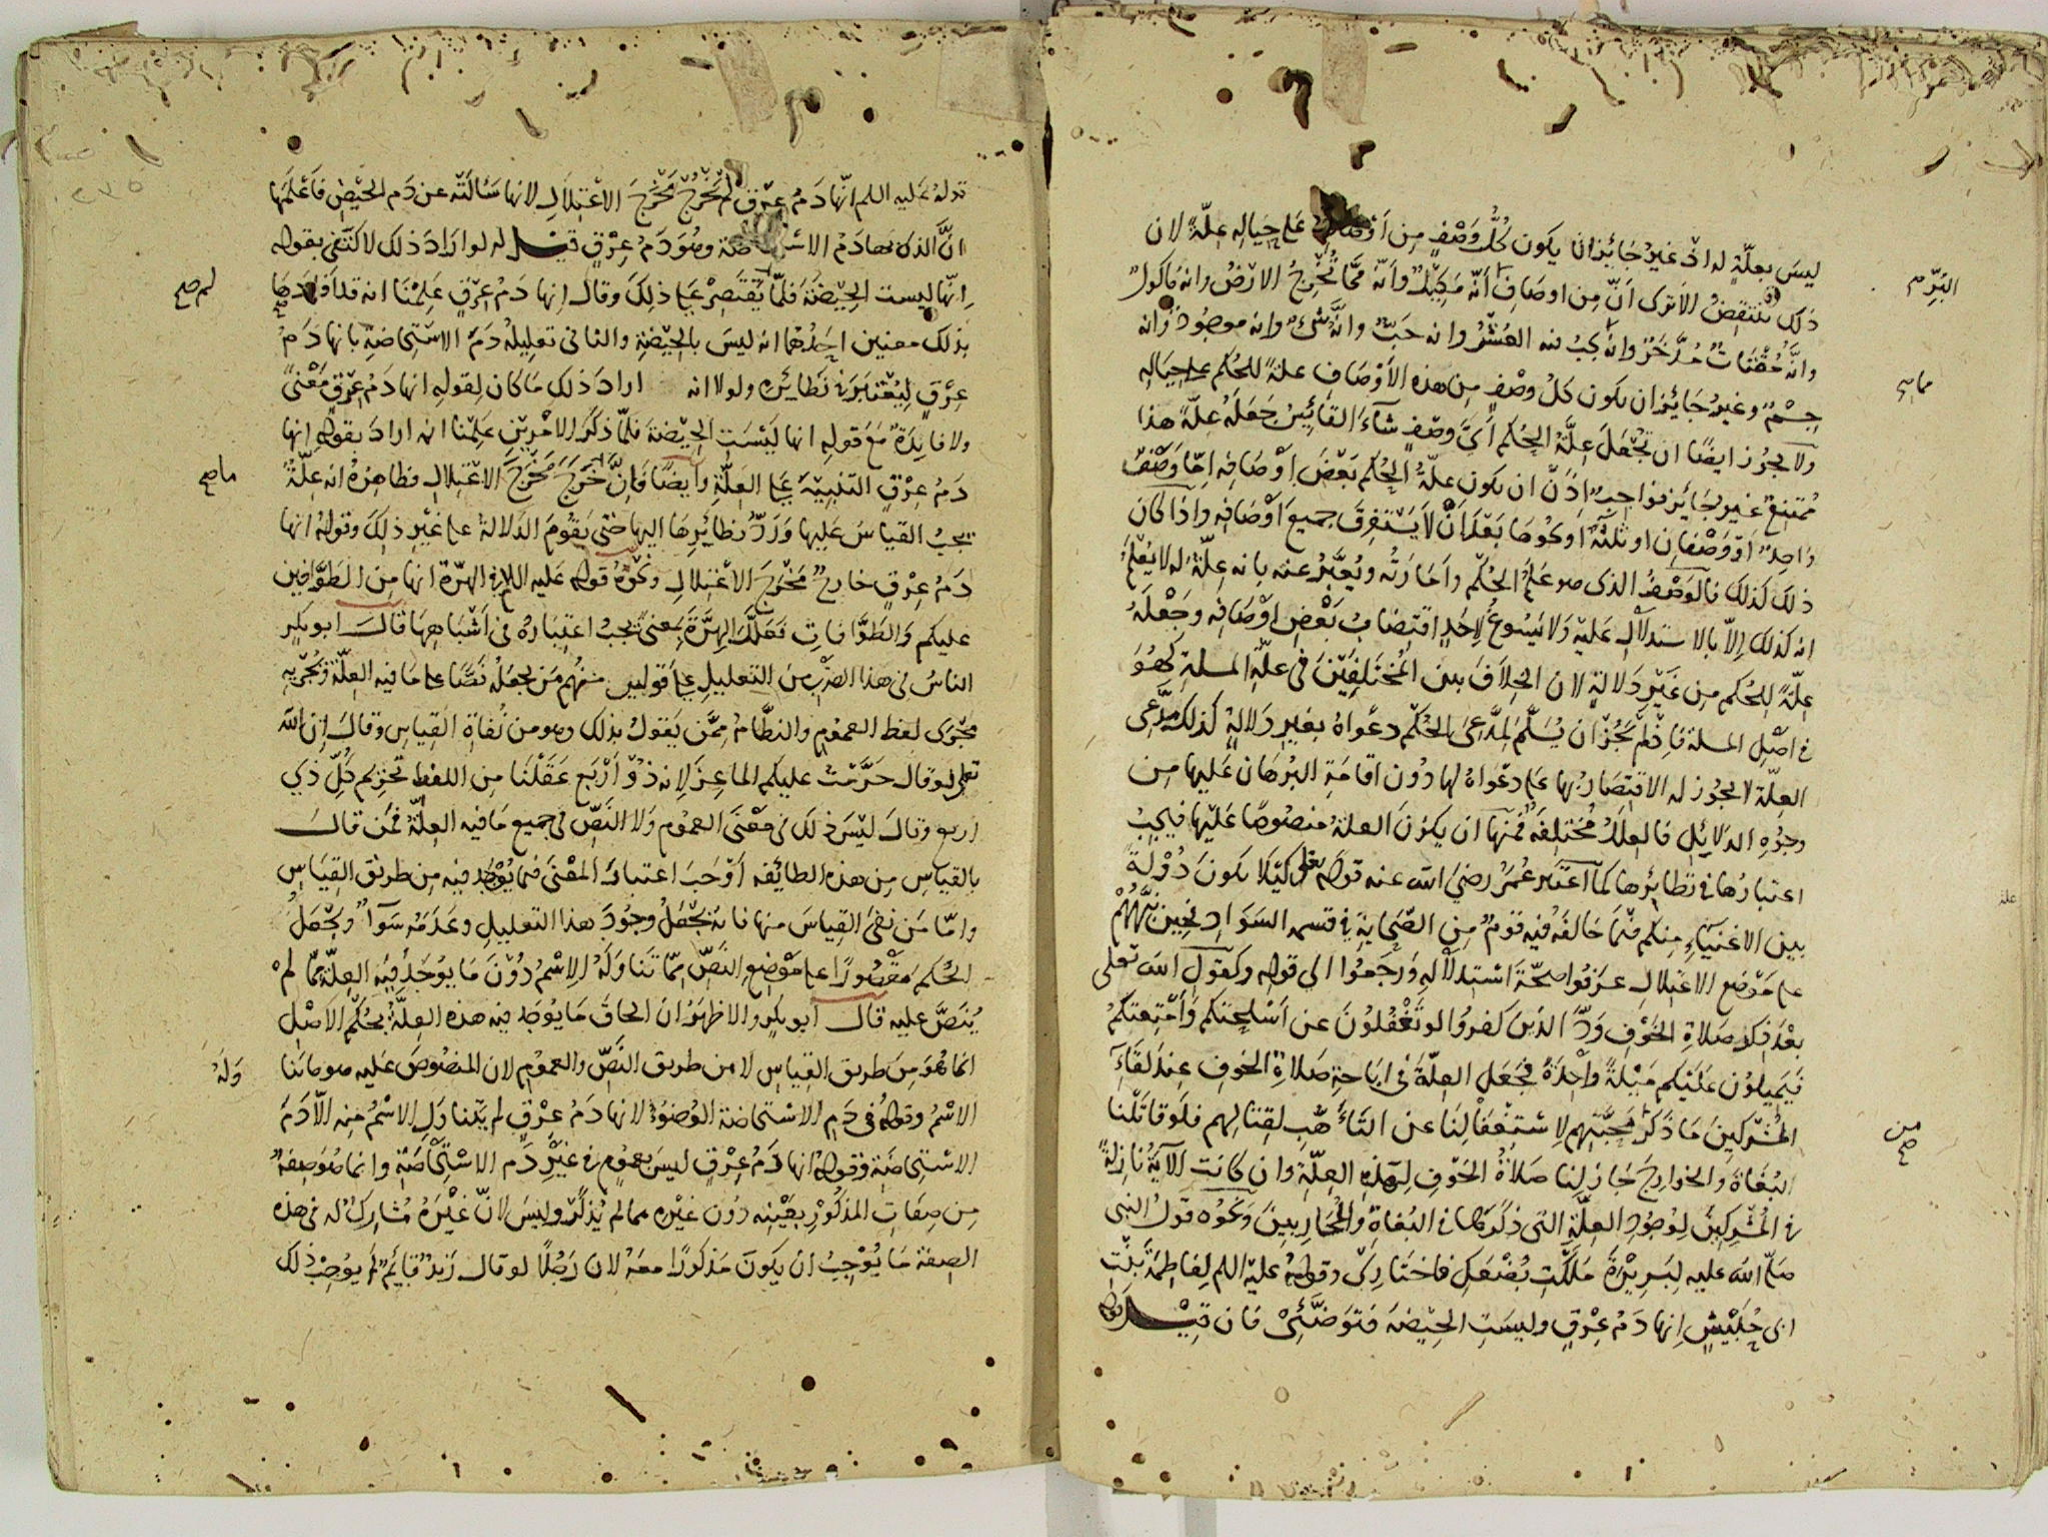 ليس بعلّةٍ له اذ غير جائز ان يكون كُلُّ وَصْفٍ مِن اَوْصافه على حياله علّةً لان
ذلك يَنْتقِضُ الا ترى اَنّ مِن اوصافِ البُرِّ اَنّه مَكِيْل واَنّه ممّا تُخْرِجُ الارْضُ وانه ماكولٌ
وانّهُ مُقْتاتٌ مُدَّخَرٌ وانه يجب فيه العُشْرُ وانه حَبٌّ وانّهُ شئٌ وانه موجُودٌ وانه
جِسْمٌ وغيرُ جائز ان يكون كلُ وصْفٍ مِن هذه الأَوْصافِ علةً للحُكم على حياله
ولا يجُوز ايضًا ان تجْعَلَ عِلَّةُ الحُكم أَيَّ وصْفٍ شآءَ القائِسُ جَعَلَهُ عِلّةً هذا
مُمتنِعٌ غير جَائزٍ فواجبٌ اِذَنْ ان يكون علّةُ الحُكم بَعْضَ اوْصَافِه اِمّا وَصْفٌ
وَاحِدٌ اَوْ وَصْفان او ثلثةٌ او نحوُها بَعْدَ اَنْ لا يَسْتَغرِقَ جميع اَوْصَافِه واِذَا كانَ
ذلك كذلك فالوَصْفُ الذى هو عَلَمُ الحُكْم واَمَارَتُه ويُعَبَّرُ عنه بانه عِلّةٌ له لا يُعْلَمُ
انه كذلك اِلاّ بالاستدلالِ عَليْه وَلا يَسُوغُ لِاحَدٍ اقتضابُ بَعْضِ اوْصَافِه وجَعْلُهُ
علّةً للحُكم مِن غَيْرِ دَلالةٍ لان الخِلافَ بين المُختَلِفِيْنَ فى علّةِ المسلة كهُوَ
فى اصْلِ المسلة فاِذْ لم يجُزْ ان يُسَلَّمَ لِمُدَّعِى الحُكْمِ دعْواهُ بغير دَلالةٍ كذلك مُدَّعِى
العِلّة لا يجُوز له الاقتِصَار بها على دَعْوَاهُ لها دُون اقامَةِ البُرْهَان عَليها مِن
وجوْهِ الدَلايل فالعِلَلُ مُختلِفَةٌ فمنها ان يكوْنَ العلةُ منصُوصًا عَلَيْها فيجبُ
اعتبارُها فى نَظائرِها كما اعتبَر عُمَرُ رضىَ الله عنه قوله تعلى كَيْلا يكونَ دُوْلةً
بين الاغنيآءِ مِنكم فيْما خالفَهُ فيه قومٌ مِن الصَّحابة فى قسمه السَوَادِ فحِيْنَ نبَّهَهُمْ
على مَوْضع الاعتِلال عرَفوا صحّةَ استدلالِه وَرجَعُوا الى قوله وكقوْلِ الله تعلى
بعْدَ ذِكْرِ صَلاةِ الخَوْفِ وَدَّ الذين كفرُوْا لو تَغْفُلوْنَ عن اَسْلحتكم وَأَمْتِعتكُمْ
فَيَمِيلوْن عَليْكم مَيْلَةً وَاحِدَةً فجَعَلَ العِلّةَ فى ابَاحةِ صَلاةِ الخوفِ عندَ لقَآءِ
المُشْرِكين مَا ذَكَرَ مِن محبَّتِهم لِاسْتِغفالِنَا عن التَأَهُّبِ لِقتالِهم فلَو قاتَلْنا
البُغَاةَ والخوارِجَ لجَاز لنا صَلاةُ الخَوْفِ لهذِه العِلّةِ وان كانت الآيةُ نازلةً
فى المُشْركين لِوجُوْدِ العِلّةِ التى ذكَرَهَا فى البُغاةِ والمُحَاربينَ وَنحوُه قولُ النبى
صلّى الله عليه لِبَرِيْرَةَ مَلَكْتِ بُضْعَكِ فاختارِى وقولهُ عليْه السلم لِفاطِمَةَ بِنْتِ
ابى حُبَيْشٍ اِنها دَمُ عِرْقٍ وليسَتِ الحَيْضه فَتَوَضَّئِىْ فان قِيْلَ
البُرّ
من صح
قولهُ عَليه السلم انّها دَمُ عِرْقٍ لم يَخْرُجْ مَخْرَجَ الاعْتِلال لانها سَأَلَتْه عن دَم الحيْضِ فأَعْلَمَها
انَّ الذى بهَا دَمُ الاستحاضة وهُوَ دَمُ عِرْقٍ قيل له لو ارَادَ ذلك لاكتفى بقوله
اِنّها ليست الحيْضةَ فلمّا لم يَقْتَصِرْ على ذلِكَ وقال اِنها دَمُ عِرْقٍ عَلِمْنَا انه قد اَفَادَهَا
بذلك معنيين احَدُهُما انه ليسَ بالحَيْضةِ والثانى تعليلهُ دَمَ الاسْتِحاضةِ بانها دَمُ
عِرْقٍ لِيُعْتبَرَ به نَظائرُه ولولا انه ارادَ ذلك مَا كان لِقولِه انها دَمُ عِرْقٍ مَعْنىً
ولا فايدَةٌ مَعَ قولِه انها ليْسَت الحيْضة فلمّا ذكَرَ الامْرينِ عَلِمْنا انه ارادَ بقوله اِنها
دَمُ عِرْقٍ التنبِيْهَ على العلّةِ وايضًا فاِنَّ ما خَرَجَ مَخْرَجَ الاعْتِلالِ فظاهِرُهُ انه عِلّةٌ
يجبُ القياسُ عَليها وَرَدُّ نظائِرِها اليها حتى يَقُومَ الدَلالةُ على غيْرِ ذلِكَ وقولهُ انها
دَمُ عِرْقٍ خارجٌ مَخْرَجَ الاعْتِلالِ ونحْوُهُ قوله عَليه السلم فى الهِرّة انها مِنَ الطَوَّافين
عليكم وَالطَوَّافاتِ فَعَلَّلَ الهِرَّةَ بمعنىً يجبُ اعتِبارُهُ فى اَشْبَاهِهَا قالَ ابو بكرٍ
الناسُ فى هذا الضرْبِ مِنَ التعليلِ على قولين منهُم مَن يجعَلُه نصًّا على مَا فيه العِلّةُ ويُجْرِيْه
مَجْرَى لفظِ العمُومِ والنظَّامُ مِمَّن يَقولُ بذلك وهو من نُفاةِ القِياسِ وقالَ اِن الله
تعلى لو قالَ حَرَّمْتُ عليكم الماعِزَ لِانه ذُوْ اَرْبَعٍ عَقَلْنَا مِن اللفظِ تحْرِيم كُلِّ ذِي
اربع وقالَ ليْسَ ذلك فى مَعْنَى العمُوم وَلا النَصِّ فى جميع مَا فيه العِلّةُ فمَن قالَ
بالقياسِ مِن هذه الطائِفه اَوْجَبَ اعتبارَ المعْنىَ فيما يُوْجَدُ فيه مِن طريْقِ القِيَاسِ
وامّا مَن نفىَ القِياسَ منها فانه يجْعَلُ وجُودَ هذا التعليلِ وعَدَمَهُ سَوَآءً ويَجْعَلُ
الحُكمَ مَقْصُورًا على مَوْضِعِ النَصِّ مِمّا تَناوَلَهُ الِاسْمُ دُوْنَ مَا يوجَدُ فِيْه العِلّةُ مِمّا لمْ
يُنَصَّ عليه قالَ ابو بكرٍ والاظهَرُ ان الحاقَ مَا يُوْجَدُ فيه هذه العِلّةُ بحُكْمِ الاصْلِ
انما هُوَ مِنَ طريق القِياسِ لا مِن طريق النَصِّ والعمُوم لان المنصُوصَ عَليه هو ما تَناوَلَهُ
الاسْمُ وقولهُ فى دَمِ الاسْتحاضة الوُضوُءُ لانها دَمُ عِرْقٍ لم يَتَناوَلِ الاسْمُ مِنه اِلّا دَمَ
الاسْتِحاضَةِ وقولهُ انها دَمُ عِرْقٍ ليسَ بعمُوم فى غَيْرِ دَمِ الاسْتِحاضَةِ وانما هُوَ صِفةٌ
مِن صِفَاتِ المذكُوْرِ بعَيْنِه دُون غَيْرِه مما لم يُذكَرْ وليسَ لاَنَّ غيْرَهُ مُشاركٌ له فى هذه
الصِفة مَا يُوْجِبُ ان يكونَ مَذكورًا معَهُ لان رَجُلًا لو قالَ زيْدٌ قايمٌ لم يوُجبْ ذلك
لم صح
ما صح
وَلَهُ
٢٣٥